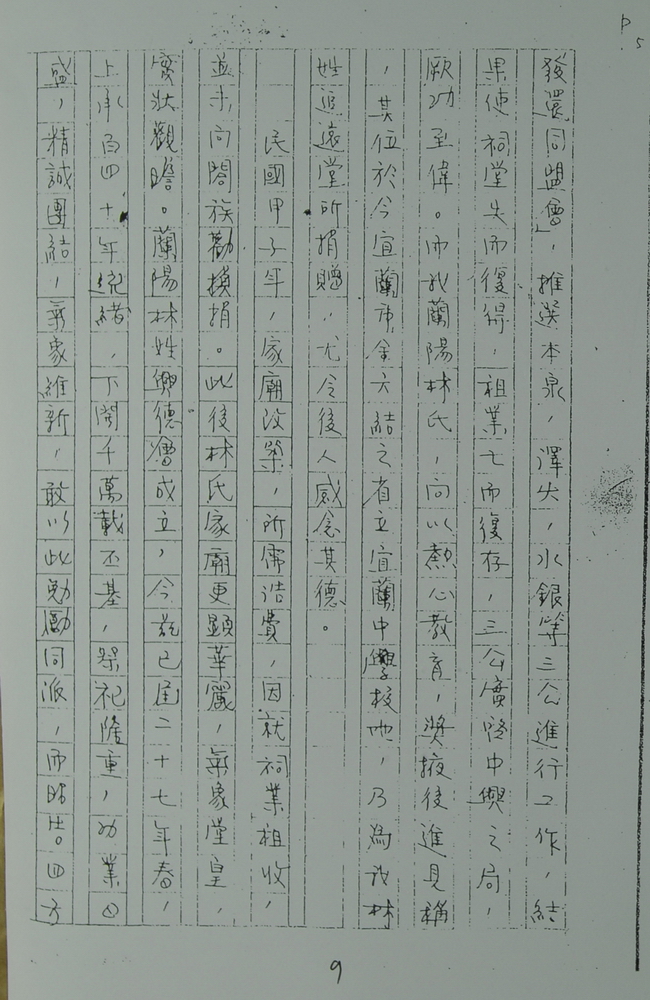 P.5
發還同盟會」，推選本泉，澤火，水銀等三公進行工作，結
果使祠堂失而復得，祖業亡而復存，三公廣啓中興之局，
厥功至偉。而我蘭陽林氏，向以熱心教育，獎掖後進見稱
，其位於今宜蘭市金六結之省立宜蘭中學校地，乃為我林
姓追遠堂所捐贈，尤令後人感念其德。
民國甲子年，家廟改築，所需浩費，因就祠業租收，
並未向閤族勸捐。此後林氏家廟更顯華麗，氣象堂皇，
壯觀瞻。蘭陽林姓興德會成立，今茲已屆二十七年春，
上承百四十年統緒，下開千萬載丕基，祭祀隆重，功業
盛，精誠團結，氣象維新，敢以此勉勵同派，而昭告四方
9